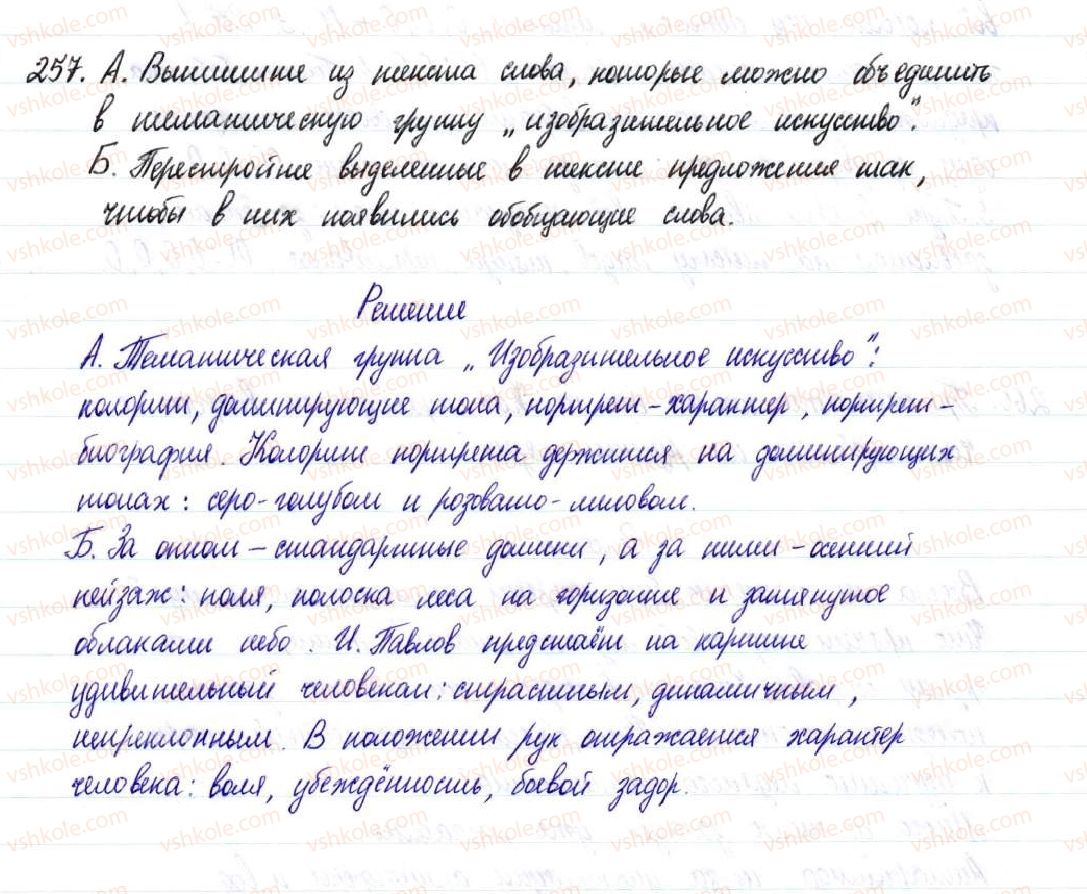 257. А. Выпишите из текста слова, которые можно объединить
в тематическую группу „изобразительное искусство".
Б. Перестройте выделенные в тексте предложения так,
чтобы в них появились обобщающие слова.
Решение
А. Тематическая группа „Изобразительное искусство":
колорит, доминирующие тона, портрет-характер, портрет-
биография. Колорит портрета держится на доминирующих
тонах: серо-голубом и розовато-лиловом.
Б. За окном – стандартные домики, а за ними – осенний
пейзаж: поля, полоска леса на горизонте и затянутое
облаками небо. И. Павлов предстаёт на картине
удивительный человекам: страстным, динамичным,
непреклонным. В положении рук отражается характер
человека: воля, убеждённость, боевой задор.